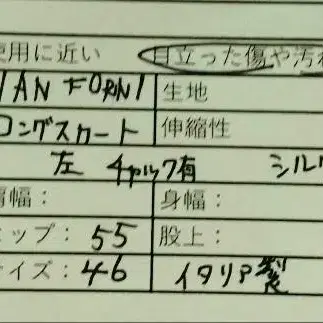 使用に近い 目立った傷や汚れ
IAN FORNI 生地
ロングスカート 伸縮性
左 チャック有 シルク
肩幅： 身幅：
ヒップ：55 股上：
サイズ：46 イタリア製